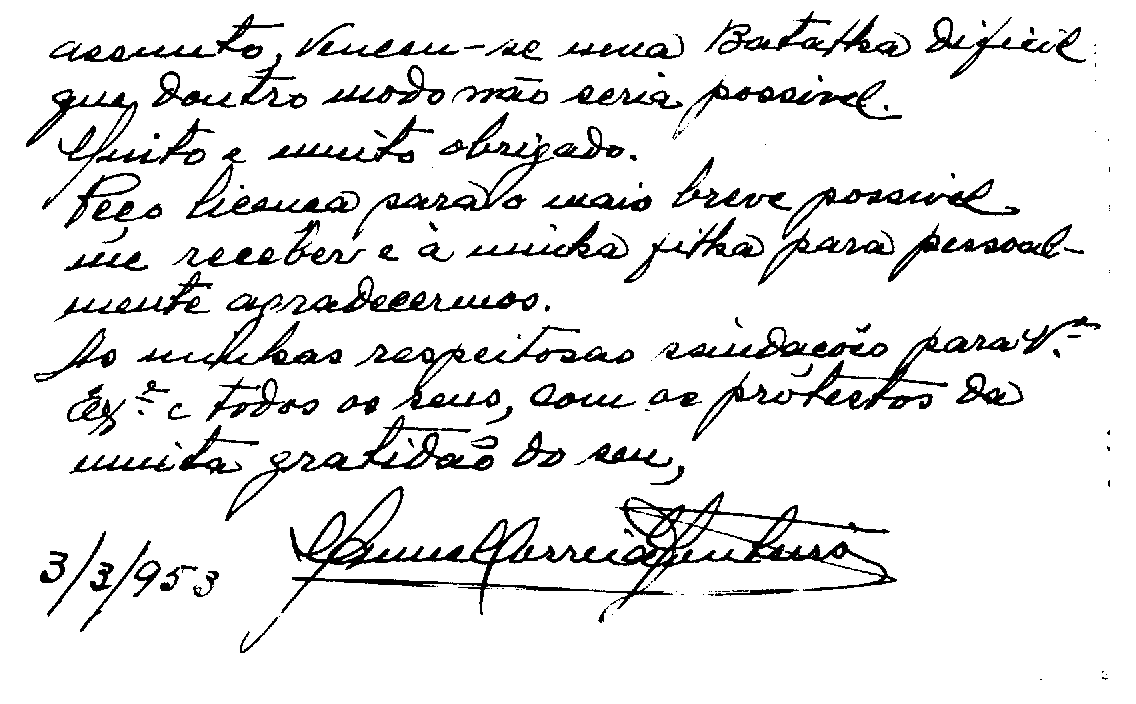 assunto, venceu-se uma Batalha dificil
que doutro modo não seria possivel.
Muito e muito obrigado.
Peço licença para o mais breve possivel
me receber e à minha filha para pessoal-
mente agradecermos.
As minhas respeitosas saudações para V.ª
Ex.ª e todos os seus, com os protestos da
muita gratidão do seu,
3/3/953 Manuel Correia